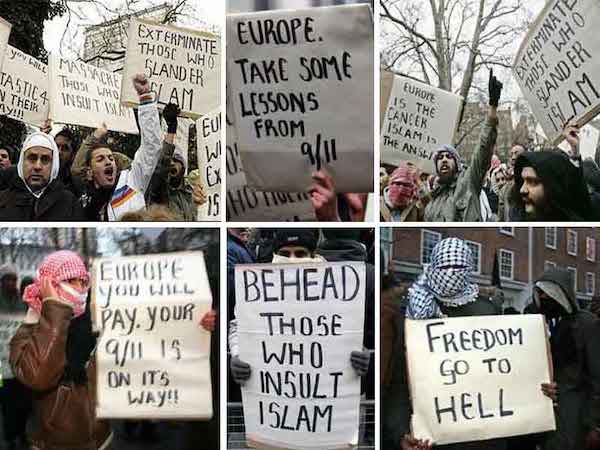 YOU WILL
TASTIC 4
THEIR
WAY!!
MASSACRE
THOSE WHO
INSULT ISLAM
EXTERMINATE
THOSE WHO
SLANDER
ISLAM
EU
EUROPE.
TAKE SOME
LESSONS
FROM
9/11
EUROPE
IS THE
CANCER
ISLAM IS
THE ANSW
EXTERMINATE
THOSE WHO
SLANDER
ISLAM
EUROPE
YOU WILL
PAY. YOUR
9/11 IS
ON ITS
WAY!!
BEHEAD
THOSE
WHO
INSULT
ISLAM
FREEDOM
GO TO
HELL